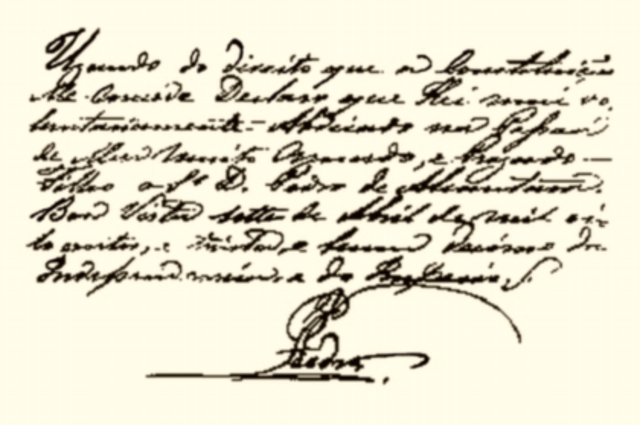 Uzando do direito que a Constituição
Me concede Declaro que Hei mui vo-
luntariamente Abdicado na Pessoa
de Meu Muito Amado, e Prezado
Filho o Sr. D. Pedro de Alcantara.
Boa Vista sette de Abril de mil oi-
to centos, e trinta, e hum decimo da
Independencia e do Imperio
Pedro